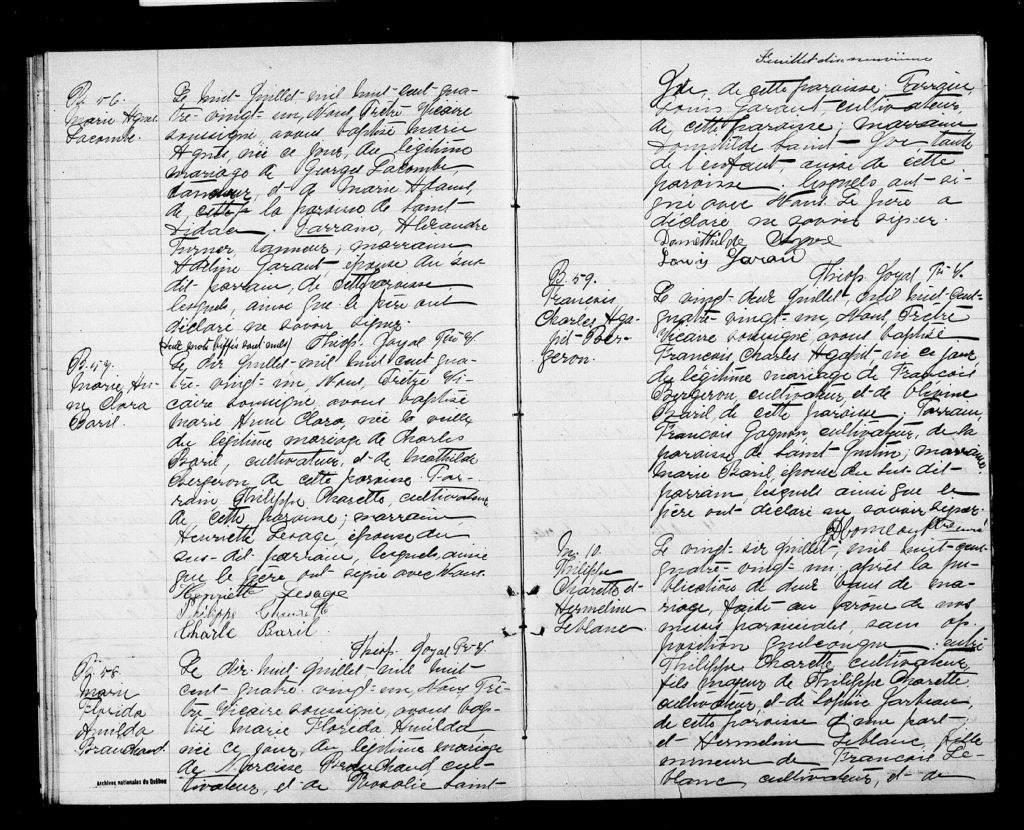 B. 56.
Marie Agnès
Lacombe.
Le huit Juillet, mil huit-cent qua-
tre-vingt-un, Nous, Prêtre Vicaire
soussigné avons baptisé Marie
Agnès, née ce jour, du légitime
mariage de Georges Lacombe,
tanneur, et de Marie Adam,
de cette la paroisse de Saint-
Didace. Parrain, Alexandre
Turner, tanneur; marraine
Adeline Garant, épouse du sus-
dit parrain, de cette paroisse,
lesquels, ainsi que le père ont
déclaré ne savoir signer.
(deux mots biffés sont nuls) Théop. Joyal Ptre V.
B. 57.
Marie An-
ne Clara
Baril.
Le dix Juillet mil huit cent qua-
tre-vingt-un, Nous, Prêtre Vi-
caire soussigné avons baptisé
Marie Anne Clara, née la veille
du légitime mariage de Charles
Baril, cultivateur, et de Mathilde
Bergeron, de cette paroisse. Par-
rain Philippe Charette, cultivateur,
de cette paroisse; marraine
Henriette Lesage, épouse du
sus-dit parrain, lesquels, ainsi
que le père ont signé avec Nous.
Henriette Lesage
Philippe
Charle Baril.
Théop. Joyal Ptre V.
B. 58.
Marie
Florida
Amilda
Branchaud.
Le dix huit Juillet mil huit
cent quatre-vingt-un, Nous Prê-
tre Vicaire soussigné, avons bap-
tisé Marie Florida Amilda
née ce jour, du légitime mariage
de Narcisse Branchaud cul-
tivateur, et de Rosalie Saint-
Archives nationales du Québec
Feuillet dix neuvième
Yve, de cette paroisse. Parrain
Louis Garant cultivateur
de cette paroisse; marraine
Domitilde Saint-Yve tante
de l'enfant, aussi de cette
paroisse. lesquels ont si-
gné avec Nous. Le père a
déclaré ne savoir signer.
Domethilde
Louis Garau
Théop. Joyal Ptre V.
B. 59.
François
Charles Aga-
pit Ber-
geron.
Le vingt-deux Juillet, mil huit-cent-
quatre-vingt-un, Nous Prêtre
Vicaire soussigné avons baptisé
François Charles Agapit né ce jour
du légitime mariage de François
Bergeron, cultivateur, et de Olivine
Baril de cette paroisse. Parrain
François Gagnon, cultivateur, de la
paroisse de Saint-Justin; marraine
Marie Baril, épouse du sus-dit-
parrain, lesquels ainsi que le
père ont déclaré ne savoir signer.
M. 10.
Philippe
Charette et
Hermeline
Leblanc.
Le vingt-six Juillet, mil huit-cent
quatre-vingt-un, après la pu-
blication de deux bans de ma-
riage, faite au prône de nos
messes paroissiales, sans op-
position quelconque entre
Philippe Charette cultivateur,
fils majeur de Philippe Charette,
cultivateur, et de Sophie
de cette paroisse d'une part-
et Hermeline Leblanc, fille
mineure de François Le-
blanc, cultivateur, et de